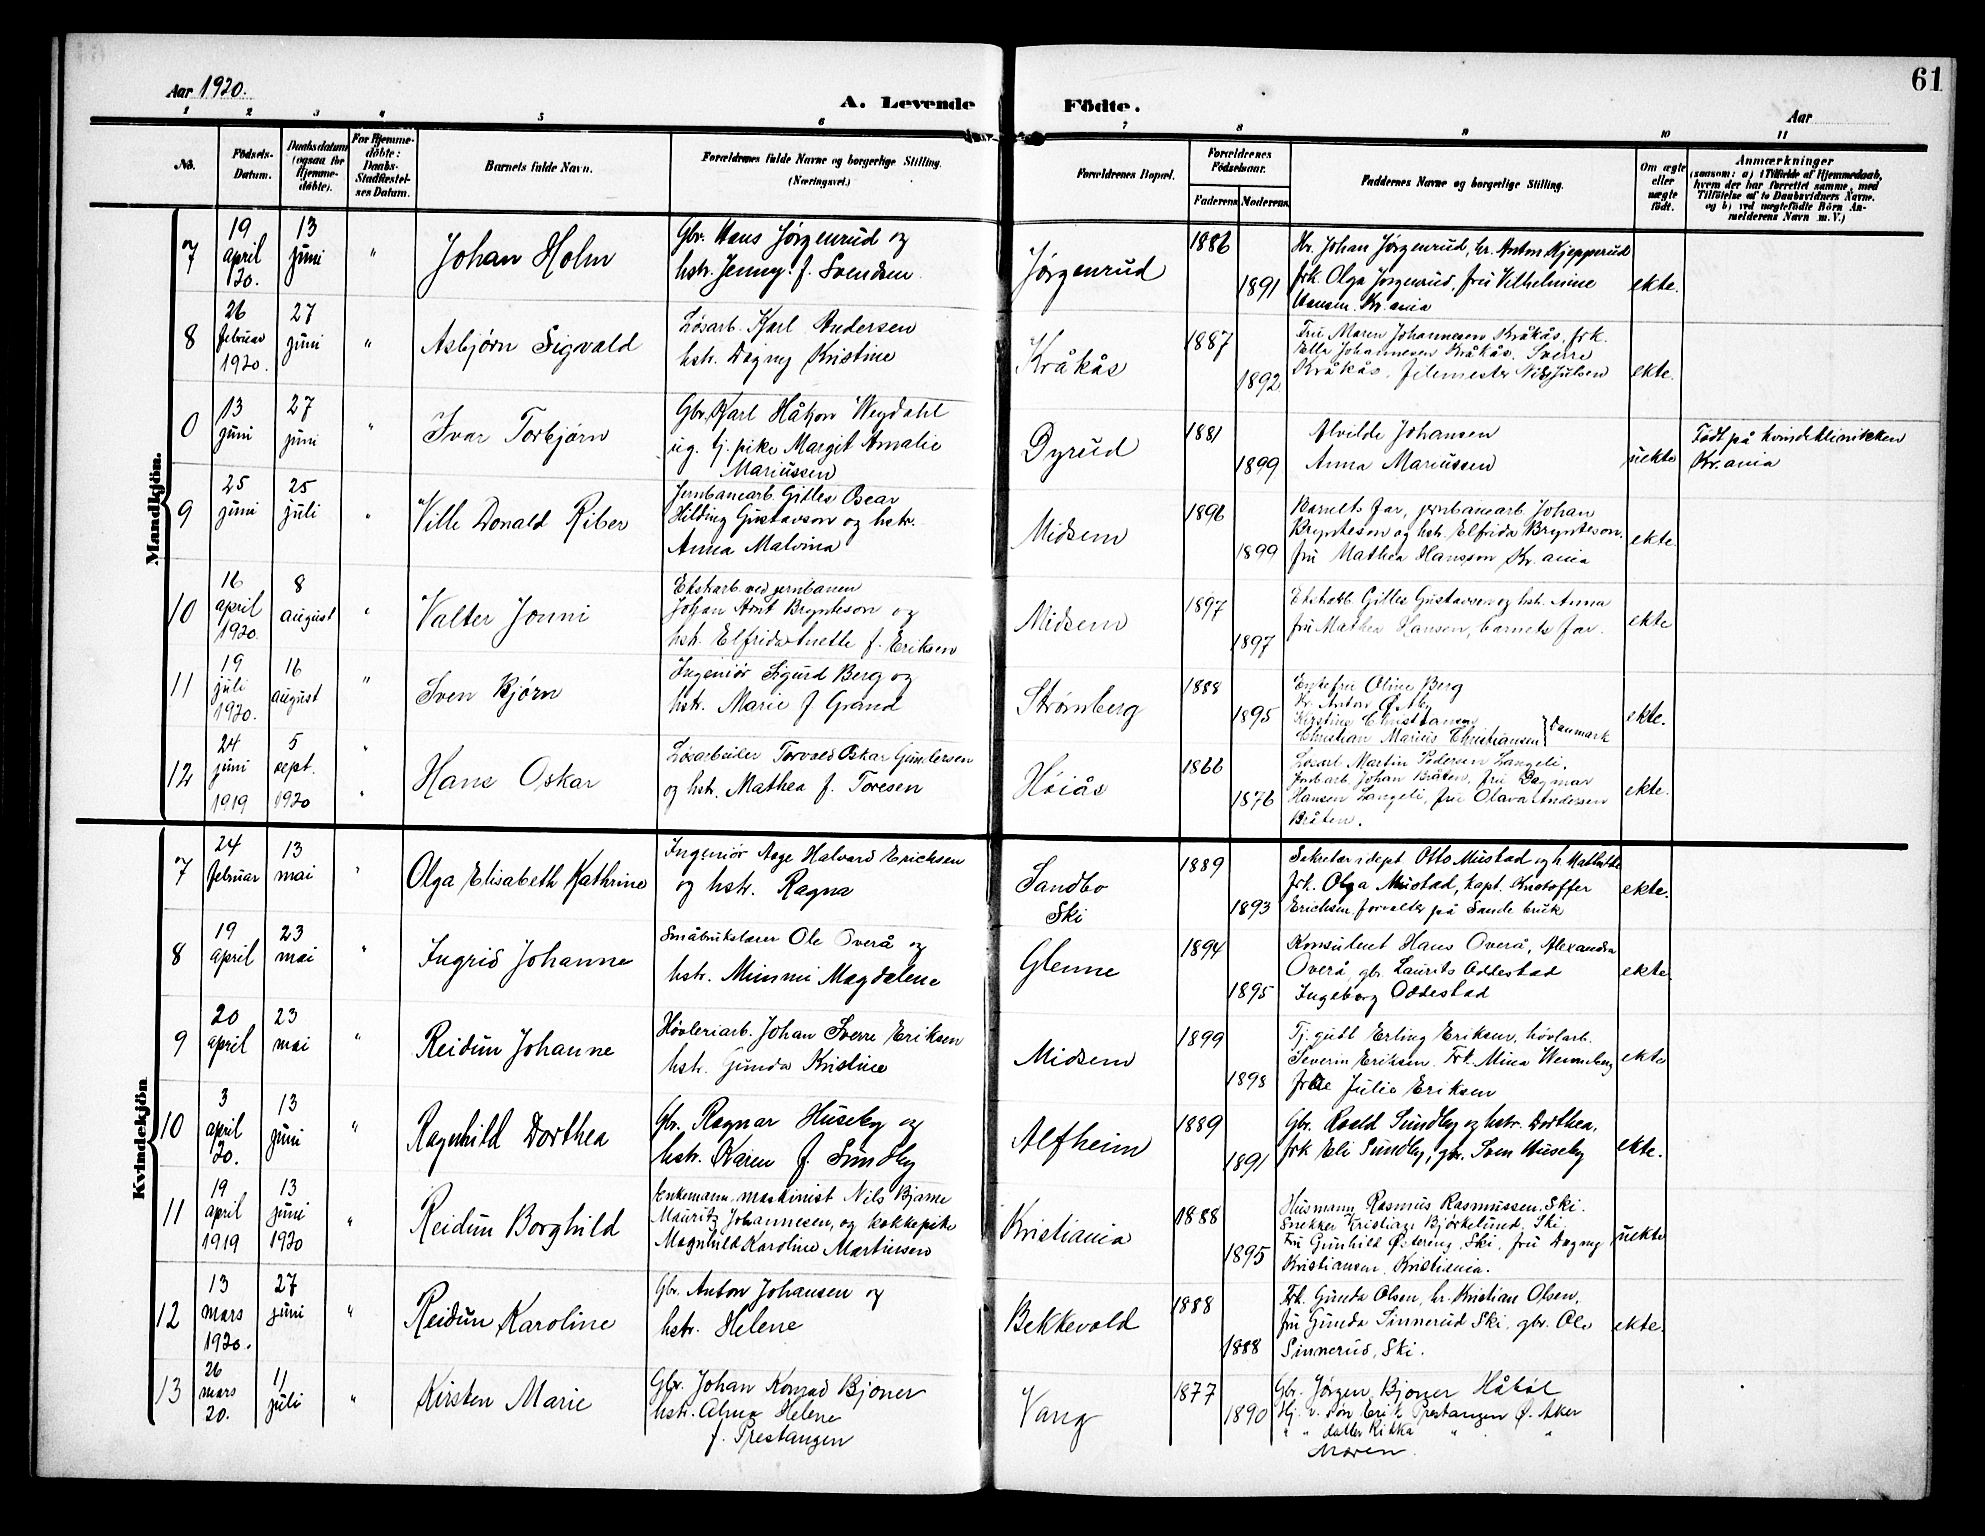 61
Aar 1920.
A. Levende Födte.
Aar
1 2 3 4 5 6 7 8 9 10 11
No.
Födsels-Datum.
Daabsdatum (ogsaa for Hjemme-döbte).
For Hjemme-döbte: Daabs-Stadfæstel-ses Datum.
Barnets fulde Navn.
Forældrenes fulde Navne og borgerlige Stilling. (Næringsvei.)
Forældrenes Bopæl.
Forældrenes Födselsaar.
Faderens Moderens
Faddernes Navne og borgerlige Stilling.
Om ægte eller uægte födt.
Anmærkninger
(saasom: a) i Tilfælde af Hjemmedaab,
hvem der har forrettet samme, med
Tilföielse af to Daabsvidners Navne.
og b) ved uægtefödte Börn An-
melderens Navn m. V.)
Mandkjön.
7
19 april 20.
13 juni
"
Johan Holm
Gbr. Hans Jørgenrud og
hstr. Jenny f. Svendsen
Jørgenrud
1886
1891
Hr. Johan Jørgenrud, hr. Anton Kjepperud
frk. Olga Jørgenrud, fru Vilhelmine
Hansen. Kr.ania
ekte.
8
26 februar 1920.
27 juni
"
Asbjørn Sigvald
Løsarb. Karl Andersen
hstr. Dagny Kristine
Kråkås
1887
1892
Fru Maren Johannesen Kråkås, frk.
Ella Johannesen Kråkås. Sverre
Kråkås, filemester Nils Julsen
ekte.
0
13 juni
27 juni
"
Ivar Torbjørn
Gbr. Karl Håkon Wegdahl
ug. tj. pike Margit Amalie
Mariussen
Dyrud
1881
1899
Alvilde Johansen
Anna Mariussen
uekte
Født på kvindeklinikken
Kr.ania
9
25 juni
25 juli
"
Ville Donald Riber
Jernbanearb. Gilles Oscar
Hilding Gustavson og hstr.
Anna Malvina
Midsem
1896
1899
Barnets far, jernbanearb Johan
Brynteson og hstr. Elfrida Brynteson.
fru Mathea Hansson Kr.ania
ekte.
10
16 april 1920.
8 august
"
Valter Jonni
Ekstrarb. ved jernbanen
Johan Arnt Brynteson og
hstr. Elfrida Anette f. Eriksen
Midsem
1897
1897
Ekstrarb. Gilles Gustavsen og hstr. Anna
fru Mathea Hansen, barnets far.
ekte
11
19 juli 1920.
16 august
"
Sven Bjørn
Ingeniør Sigurd Berg og
hstr. Marie f Grand
Strømberg
1888
1895
Enkefru Oline Berg
Hr. Anton Østby
Kirstine Christiansen
Christian Marius Christiansen } Danmark
ekte.
12
24 juni 1919
5 sept. 1920
" "
Hans Oskar
Løsarbeider Torvald Oskar Gundersen
og hstr. Mathea f. Toresen
Høiås
1866
1876
Løsarb. Martin Pedersen Langeli.
Jordarb. Johan Bråten, fru Dagmar
Hansen Langeli, fru Olava Andersen
Bråten.
ekte.
Kvindekjön
7
24 februar
13 mai
"
Olga Elisabeth Kathrine
Ingeniør Aage Halvard Erichsen
og hstr. Ragna
Sandbo
Ski
1889
1893
Sekretær i dept. Otto Mustad og h. Mathilde
frk. Olga Mustad, kapt. Kristoffer
Erichsen forvalter på Sande bruk
ekte.
8
19 april
23 mai
"
Ingrid Johanne
Småbrukslærer Ole Overå og
hstr. Mimmi Magdalene
Glenne
1894
1895
Konsulent Hans Overå, Alexandra
Overå, gbr. Laurits Oddestad
Ingeborg Oddestad
ekte.
9
20 april
23 mai
"
Reidun Johanne
Høvleriarb. Johan Sverre Eriksen
hstr. Gunda Kristine
Midsem
1899
1898
Tj. gutt Erling Eriksen, høvlarb.
Severin Eriksen. Frk. Mina Wennberg
Julie Eriksen
ekte
10
3 april 20.
13 juni
"
Ragnhild Dorthea
Gbr. Ragnar Huseby og
hstr. Karen f. Sundby
Alfheim
1889
1891
Gbr. Roald Sundby og hstr. Dorthea,
frk Eli Sundby, gbr. Sven Huseby
ekte.
11
19 april 1919
13 juni 1920
"
Reidun Borghild
Enkemann, maskinist Nils Bjarne
Mauritz Johannesen, og kokkepike
Magnhild Karoline Martinsen
Kristiania
1888
1895
Husmann Rasmus Rasmussen, Ski.
Snekker Kristian Bjørkelund, Ski.
Fru Gunhild Østereng, Ski, fru Dagny
Kristiansen. Kristiania.
uekte
12
13 mars 1920.
27 juni
"
Reidun Karoline
Gbr. Anton Johansen og
hstr. Helene
Bekkevold
1888
1888
Frk. Gunda Olsen, hr. Kristian Olsen,
fru Gunda Sinnerud Ski, gbr. Ole
Sinnerud, Ski.
ekte.
13
26 mars 20.
11 juli
"
Kirsten Marie
Gbr. Johan Konrad Bjoner
hstr. Alma Helene
f. Prestangen
Vang
1877
1890
Gbr. Jørgen Bjoner Håbøl
Hj. v. søn Erik Prestangen Ø. Aker
" " datter Rikka " "
Moren.